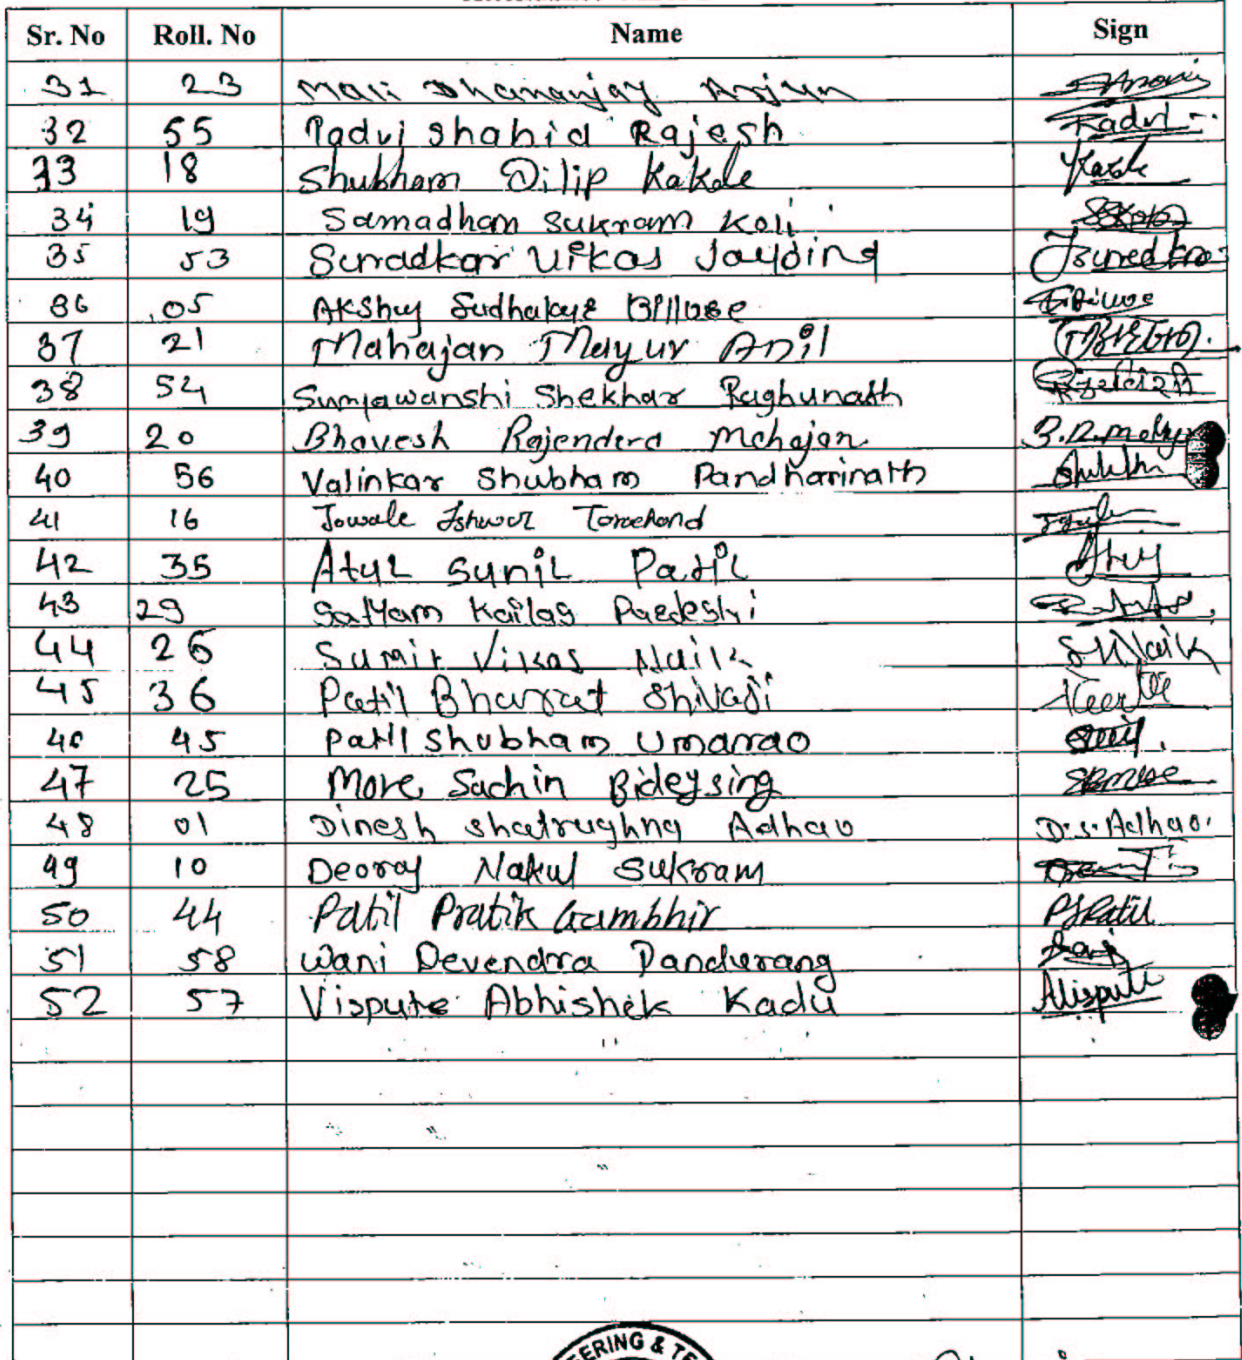 Sr. No Roll. No Name Sign
31 23 Mali Dhananjay Arjun
32 55 Padvi Shahid Rajesh Padvi
33 18 Shubham Dilip Kakde Kakde
34 19 Samadhan Sukram Koli
35 53 Surradkar Vikas Jayding
36 05 Akshay Sudhakar
37 21 Mahajan Mayur Anil
38 54 Suryawanshi Shekhar Raghunath
39 20 Bhavesh Rajendera Mahajan
40 56 Valinkar Shubham Pandharinath
41 16 Jowale Ishwar
42 35 Atul Sunil Patil
43 29 Satyam Kailas Pardeshi
44 26 Sumit Vikas Naik
45 36 Patil Bharat Shivaji
46 45 Patil Shubham Umarrao
47 25 More Sachin Bideysing
48 01 Dinesh Shatrughna Adhao D.S. Adhao.
49 10 Deoraj Nakul Sukram
50 44 Patil Pratik Gambhir
51 58 Wani Devendra Pandurang
52 57 Vispute Abhishek Kadu
ERING & TE